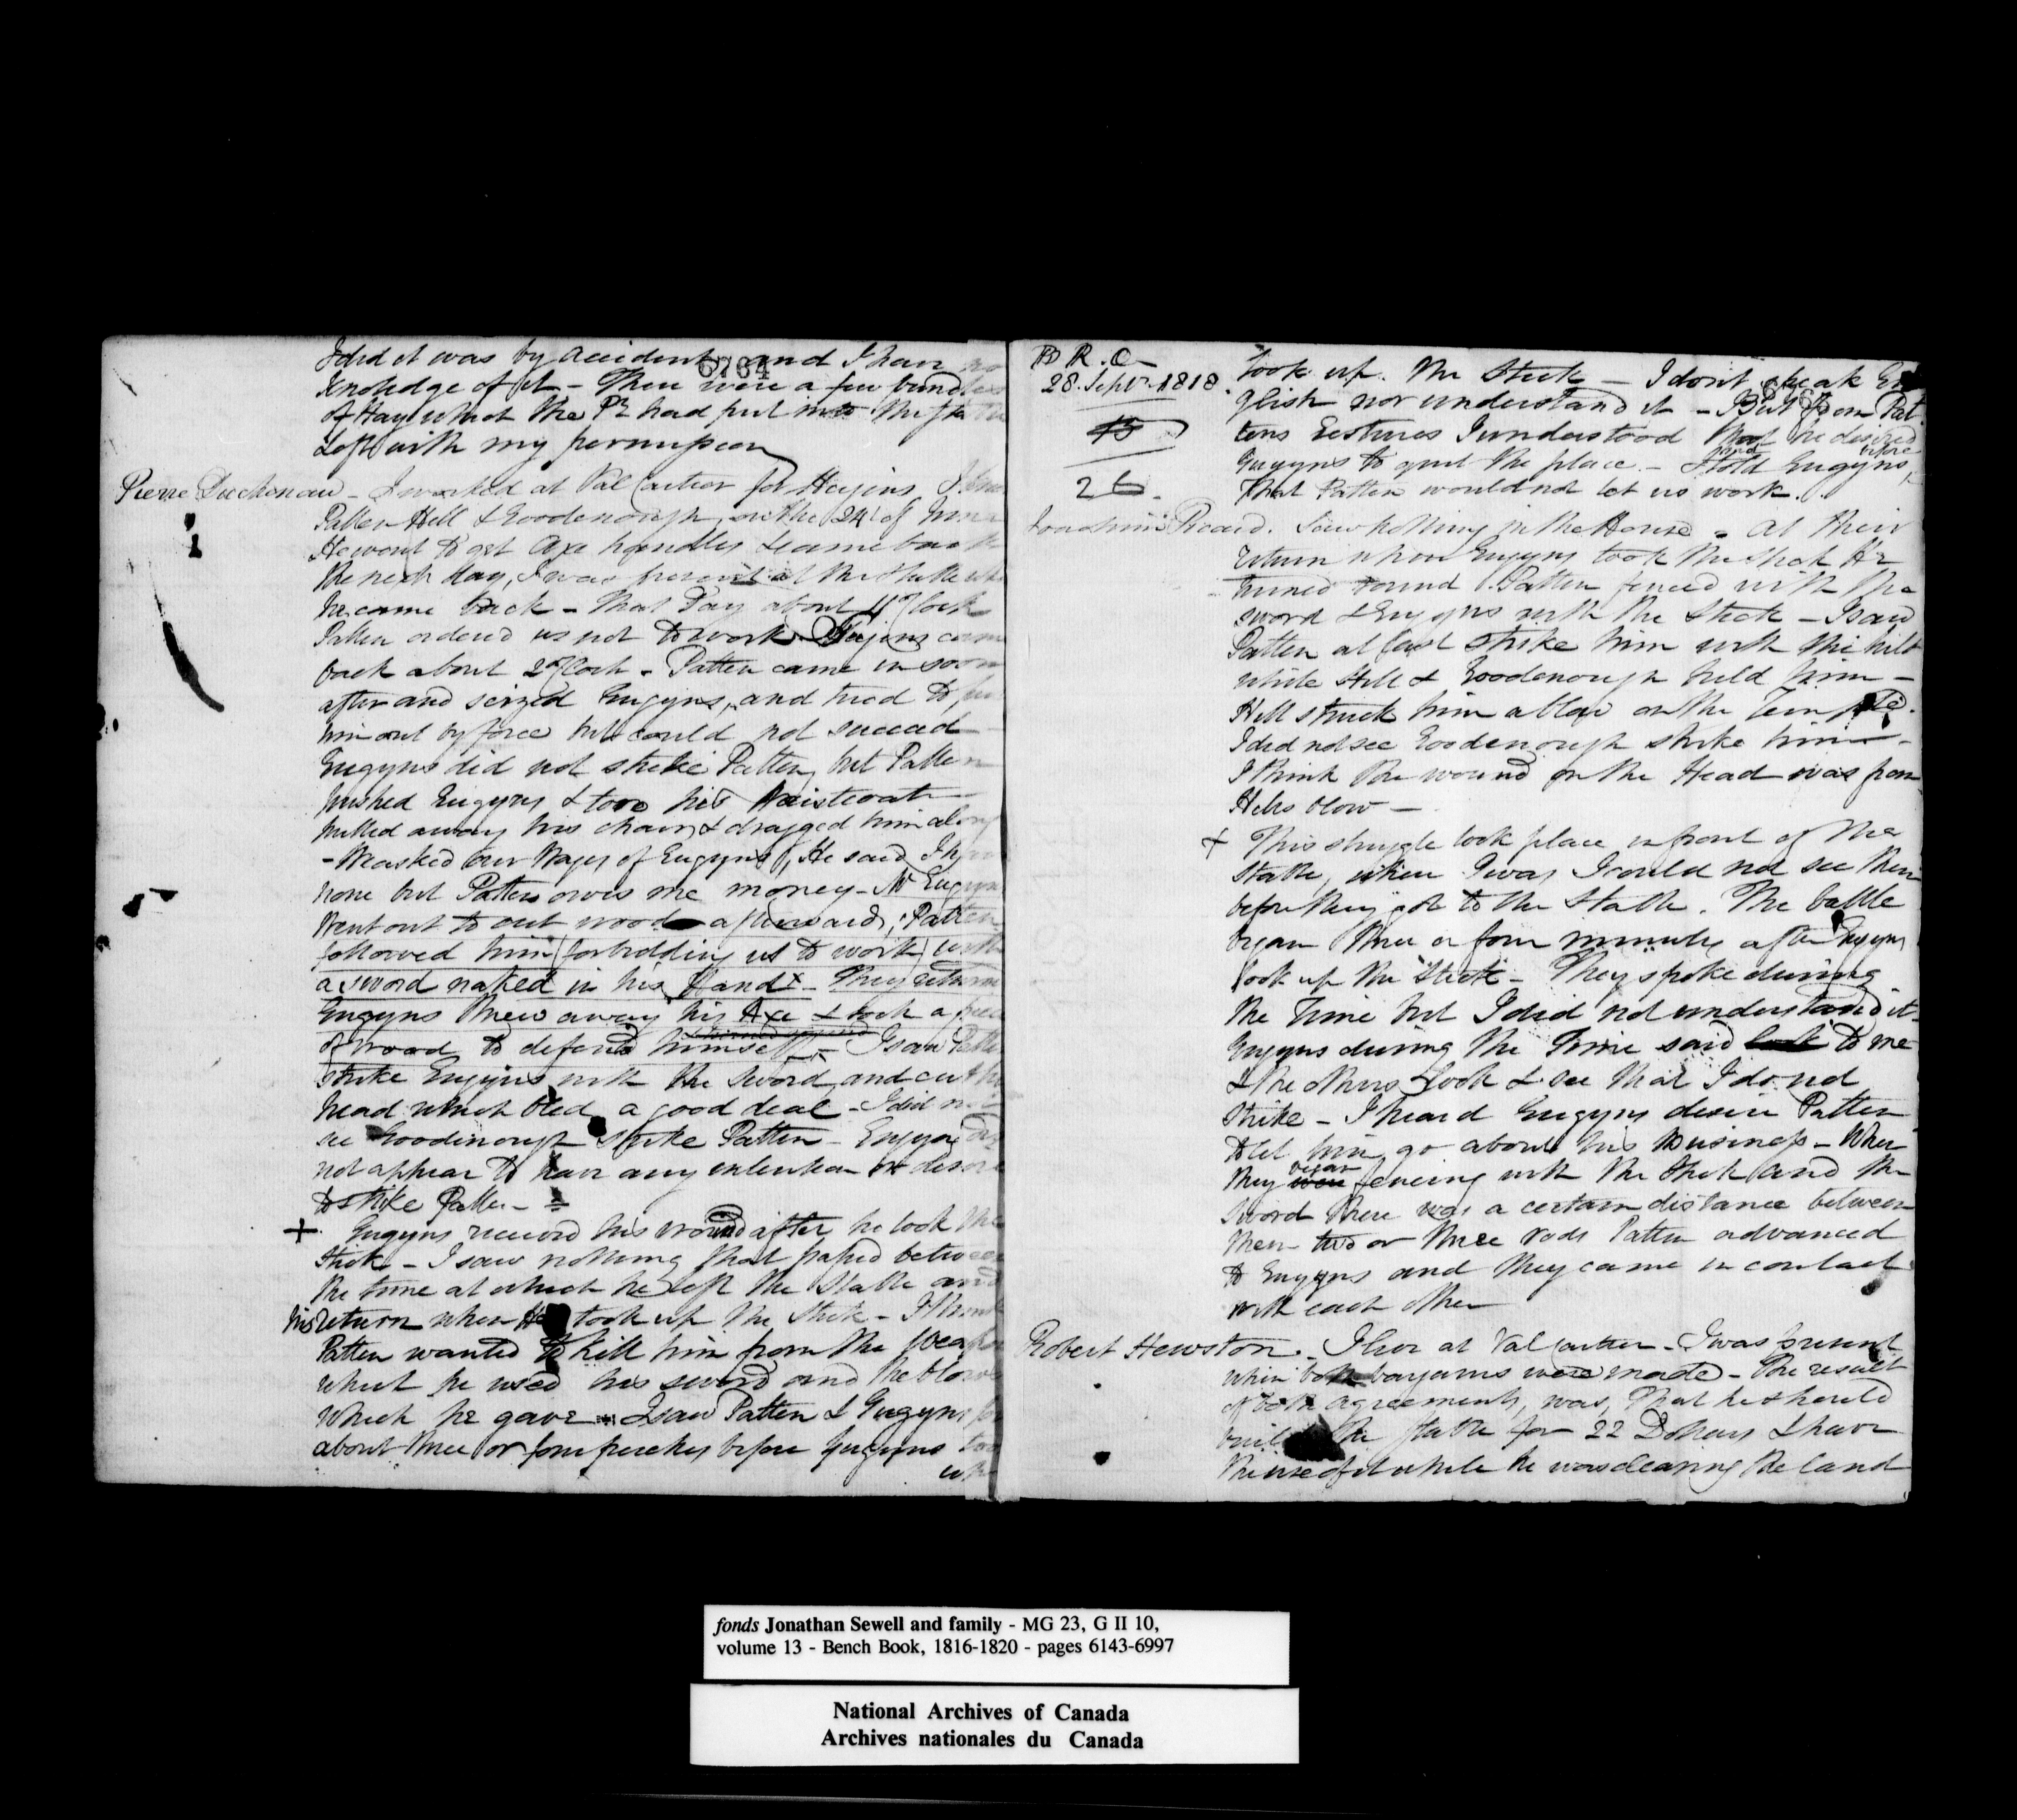 I did it was by accident and I have no
6764
Knowledge of it - There were a few bundles
of Hay which the Pr had put into the
Loft with my permission
Pierre Duchenau - I worked at Val Cartier for Hugins I
Patten Hill & Goodenough, on the 24 of
He went to get Axe handles & came back
the next day, I was present at the Stable when
he came back - That Day about 11 oClock
Patten ordered us not to work - Hugins came
back about 2 oClock - Patten came in soon
after and seized Eugyns, and tried to
him out by force but could not succeed
Eugyns did not strike Patten but Patten
pushed Eugyns, & tore his Waistcoat
pulled away his chair & dragged him along
- We asked our Wages of Eugyns, He said I
none but Patten owes me money - Mr Eugyns
Went out to cut wood afterwards; Patten
followed him (forbidding us to work) with
a sword naked in his Hand x - They return
Eugyns threw away his Axe & took a piece
of wood to defend himself - I saw Patten
strike Eugyns with the sword, and cut his
head which bled a good deal - I did not
see Goodinough strike Patten - Eugyns did
not appear to have any intention or desire
to strike Patten -
+ Eugyns received his wound after he took the
Stick - I saw nothing that passed between
the time at which he left the Stable and
his return when He took up the Stick - I think
Patten wanted to kill him from the weapon
which he used his sword and the blows
which he gave - I saw Patten & Eugyns
about three or four perches before Eugyns
B R. C -
28. Septr. 1818.
15
26.
took up the Stick - I dont speak En
glish nor understand it - But from Pat
tens Gestures I understood that he desired
Eugyns to quit the place. - told Eugyns,
before
that Patten would not let us work.
Joachim Picard. Saw nothing in the House - at their
return when Eugyns took the stick He
turned round. Patten fenced with the
sword & Eugyns with the Stick - I saw
Patten at last strike him with the hilt
while Hill & Goodenough held him -
Hill struck him a blow on the Temple.
I did not see Goodenough strike him -
I think the wound on the Head was from
Hills blow -
+ This struggle took place in front of the
Stable, where I was, I could not see them
before they got to the Stable. The battle
began three or four minutes after Eugyns
took up the Stick - They spoke during
the Time but I did not understand it -
Eugyns during the Time said look to me
& the others Look & see that I do not
strike - I heard Eugyns desire Patten
to let him go about his business - When
they were fencing with the Stick and the
began
sword there was a certain distance between
them two or three rods Patten advanced
to Eugyns and they came in contact
with each other
Robert Hewston. I live at Val Cartier - I was present
when both bargains were made - The result
of both agreements, was, that he should
build the stable for 22 Dollars & have
the use of it while he was clearing the land
fonds Jonathan Sewell and family - MG 23, G II 10,
volume 13 - Bench Book, 1816-1820 - pages 6143-6997
National Archives of Canada
Archives nationales du Canada